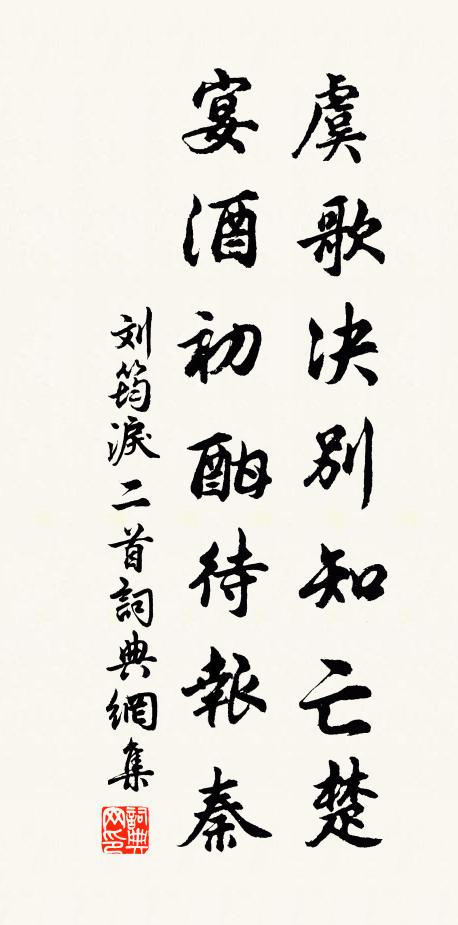 虞歌决別知亡楚
宴酒初酣待報秦
刘筠淚二首詞典網集
詞典网印